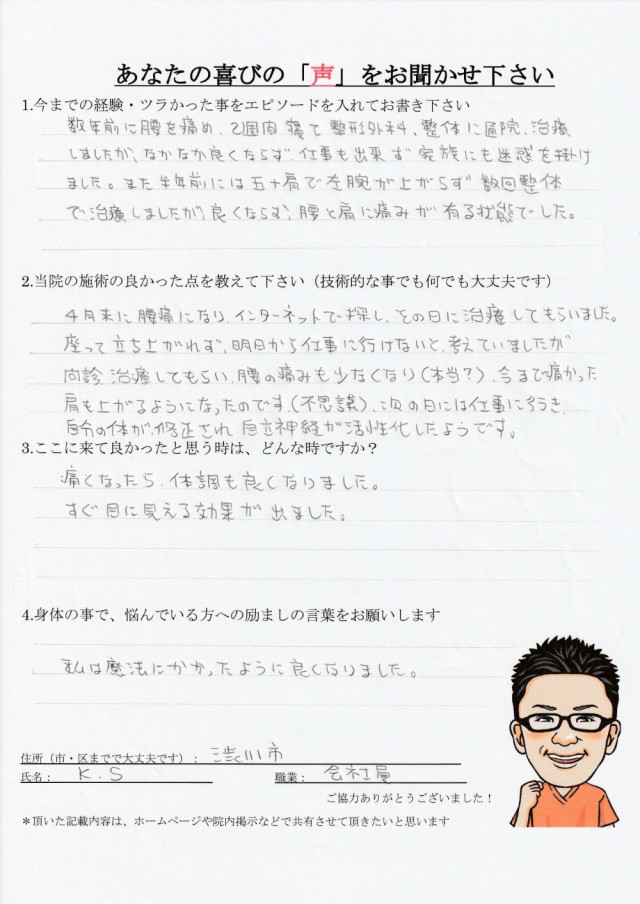 あなたの喜びの「声」をお聞かせ下さい
1.今までの経験・ツラかった事をエピソードを入れてお書き下さい
数年前に腰を痛め、2週間寝て整形外科、整体に通院、治療
しましたが、なかなか良くならず、仕事も出来ず家族にも迷惑を掛け
ました。また半年前には五十肩で左腕が上がらず数回整体
で治療しましたが、良くならず、腰と肩に痛みが有る状態でした。
2.当院の施術の良かった点を教えて下さい（技術的な事でも何でも大丈夫です）
4月末に腰痛になり、インターネットで探し、その日に治療してもらいました。
座って立ち上がれず、明日から仕事に行けないと、考えていましたが
問診、治療してもらい、腰の痛みも少なくなり（本当？）、今まで痛かった
肩も上がるようになったのです。（不思議）、次の日には仕事に行き、
自分の体が、修正され自立神経が活性化したようです。
3.ここに来て良かったと思う時は、どんな時ですか？
痛くなったら、体調も良くなりました。
すぐ目に見える効果が出ました。
4.身体の事で、悩んでいる方への励ましの言葉をお願いします
私は魔法にかかったように良くなりました。
住所（市・区までで大丈夫です）：渋川市
氏名：K.S 職業：会社員
ご協力ありがとうございました！
＊頂いた記載内容は、ホームページや院内掲示などで共有させて頂きたいと思います